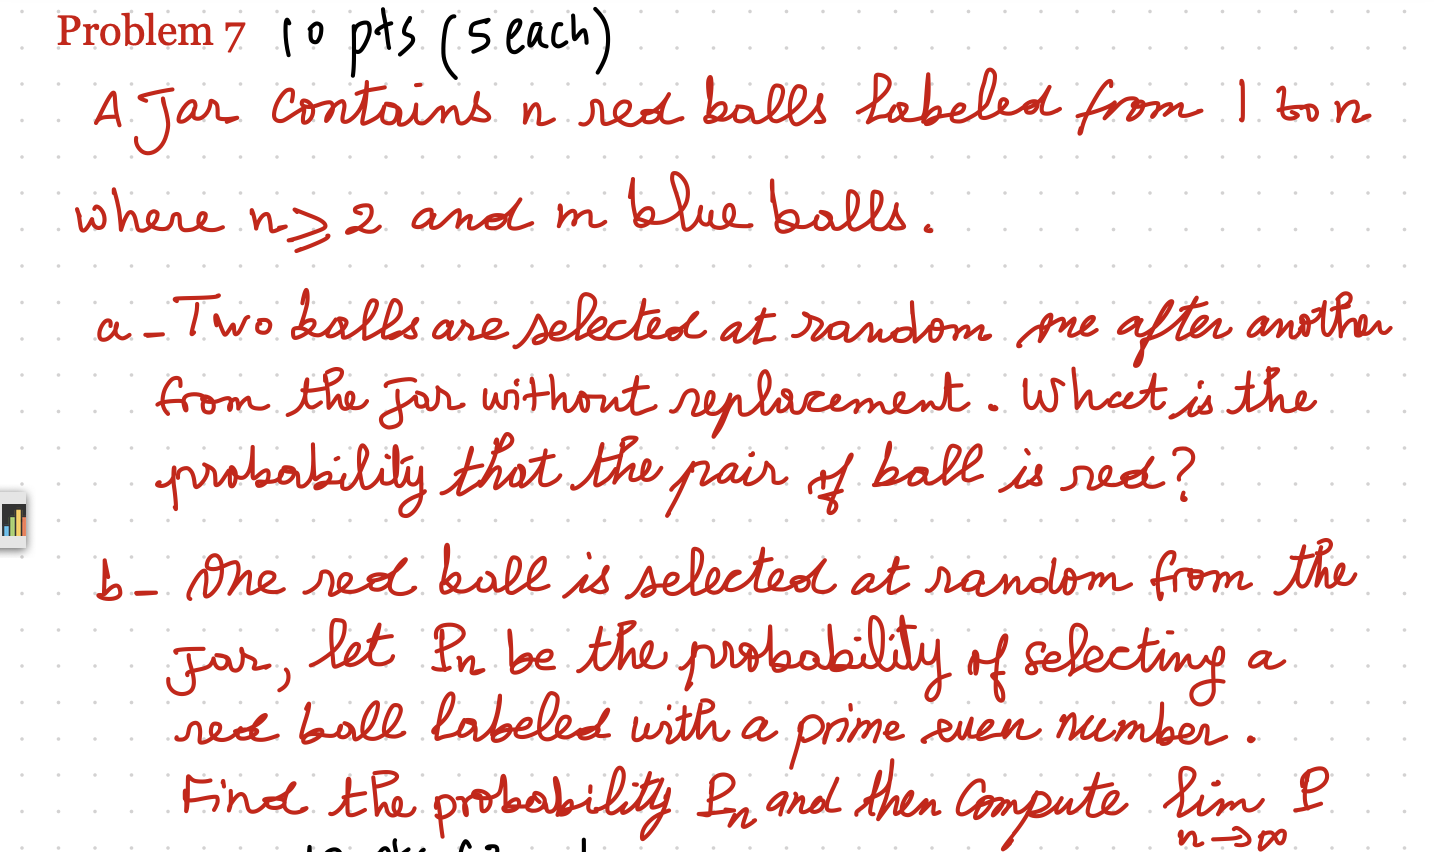 Problem 7 10 pts (5 each)
A Jar contains n red balls labeled from 1 to n
where n ⩾ 2 and m blue balls.
a - Two balls are selected at random one after another
from the Jar without replacement. What is the
probability that the pair of ball is red?
b - One red ball is selected at random from the
Jar, let Pn be the probability of selecting a
red ball labeled with a prime even number.
Find the probability Pn and then Compute lim P
n→∞